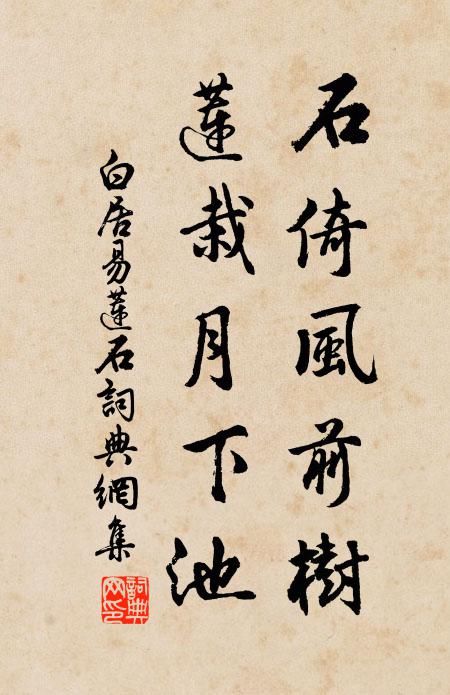 石倚風前樹
蓮栽月下池
白居易蓮石詞典網集
詞典网印